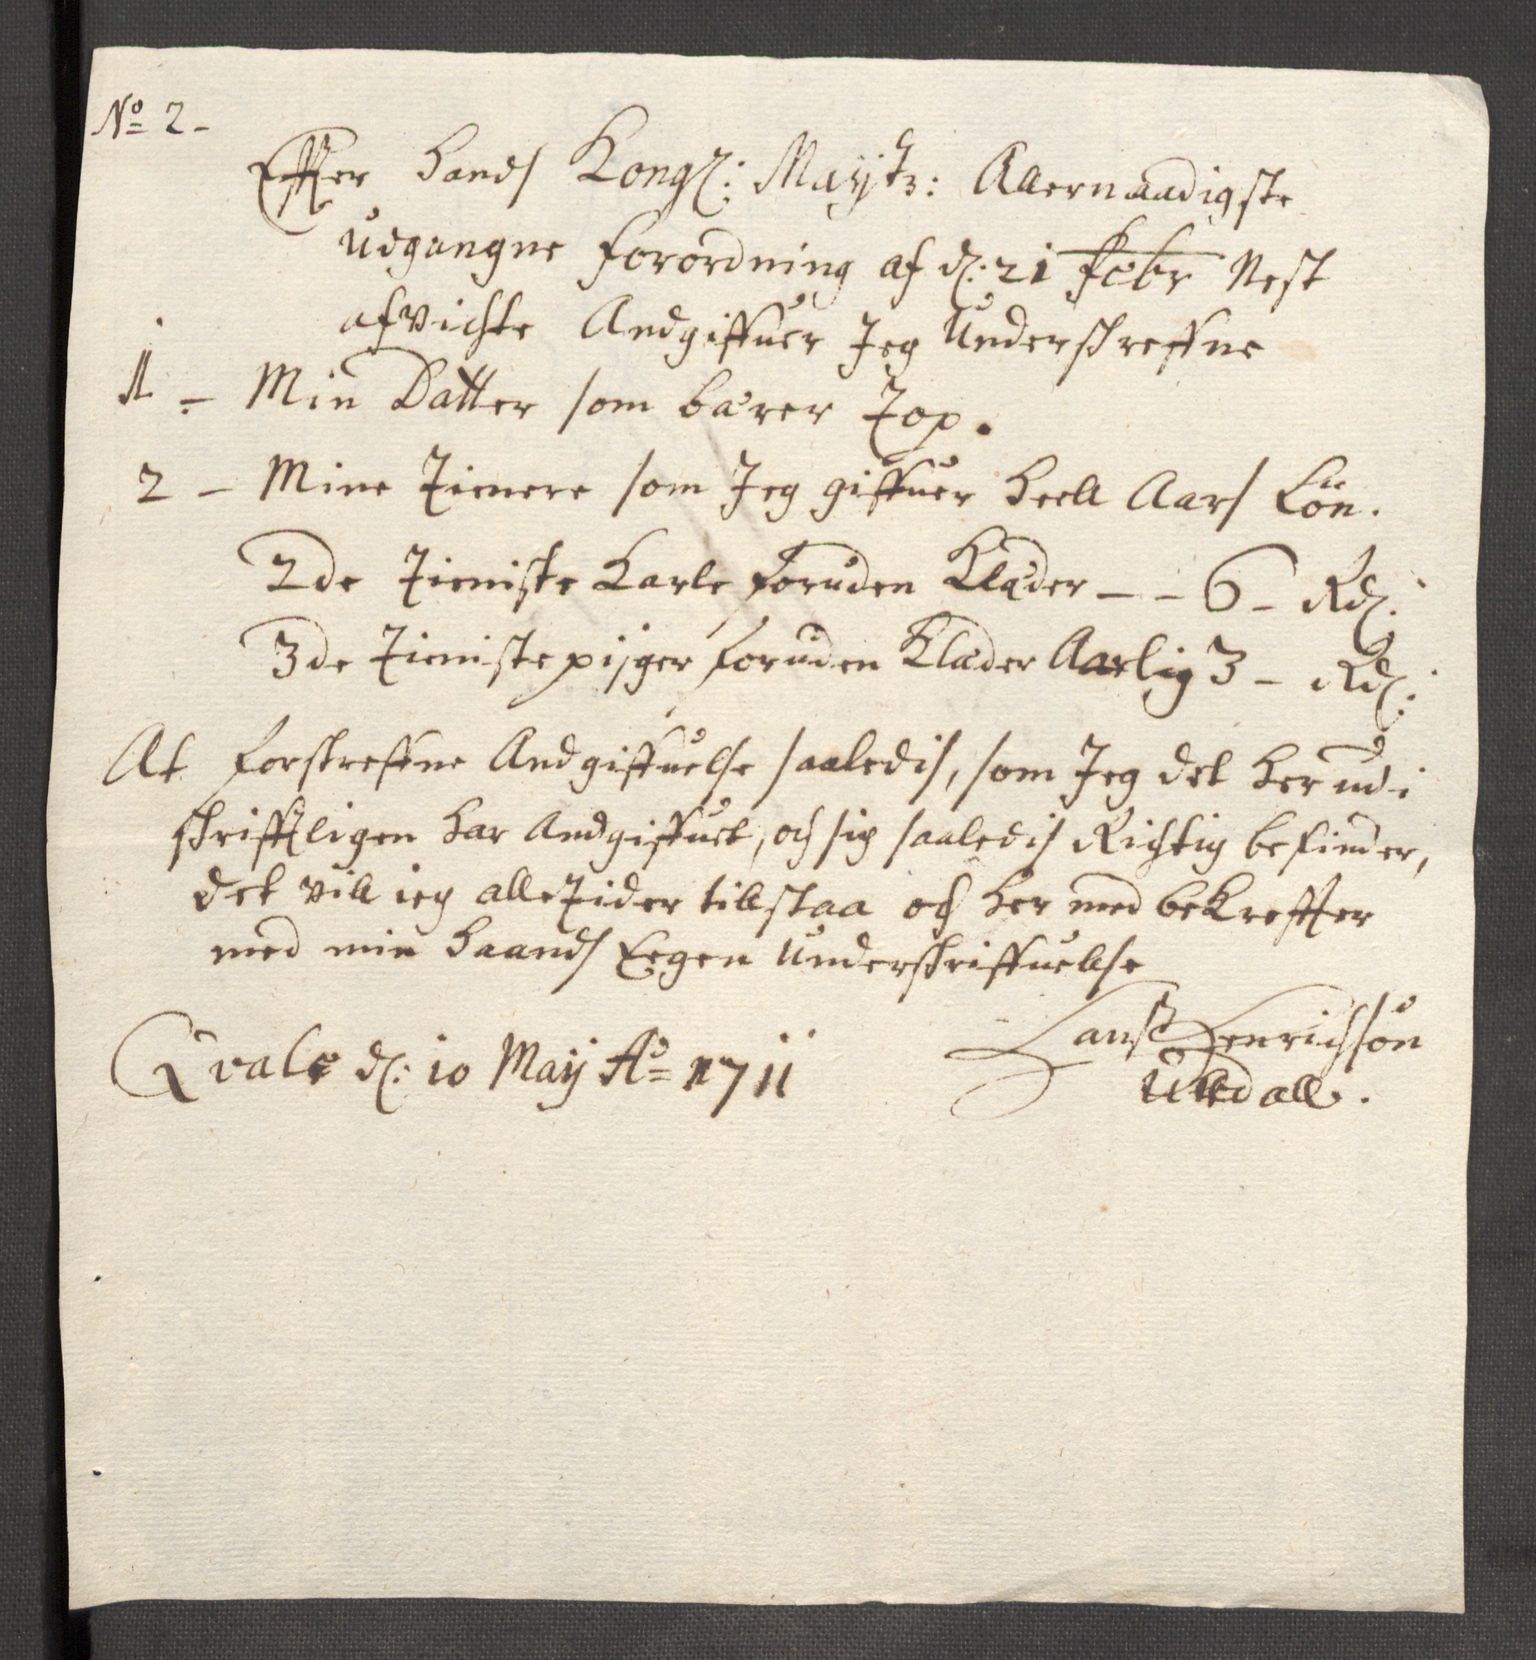 No 2 -
Effter hands Kongl: Mayjtz: Allernaadigste
udgangne forordning af d: 21 Febr Nest
afvichte Andgiffuer Jeg Underskreffne
1 - Min Datter som bærer Top.
2 - Mine Tienere som Jeg giffuer heell Aars Lön.
2de Tieniste Karle foruden Klæder - - 6 - Rd:
3de Tieniste pisger foruden Klæder Aarlig 3 - Rd:
At forskreffne Andgiffuelse saaledis, som Jeg det her udi
skrifftligen har Andgiffuet, och sig saaledis Richtig befinder,
det vill ieg alletider tillstaa och her med bekreffter
med min haands Eegen Underskriffuellse
Qvale d: 10 Maij Ao 1711
Lauss Henrichsön
Uldall.